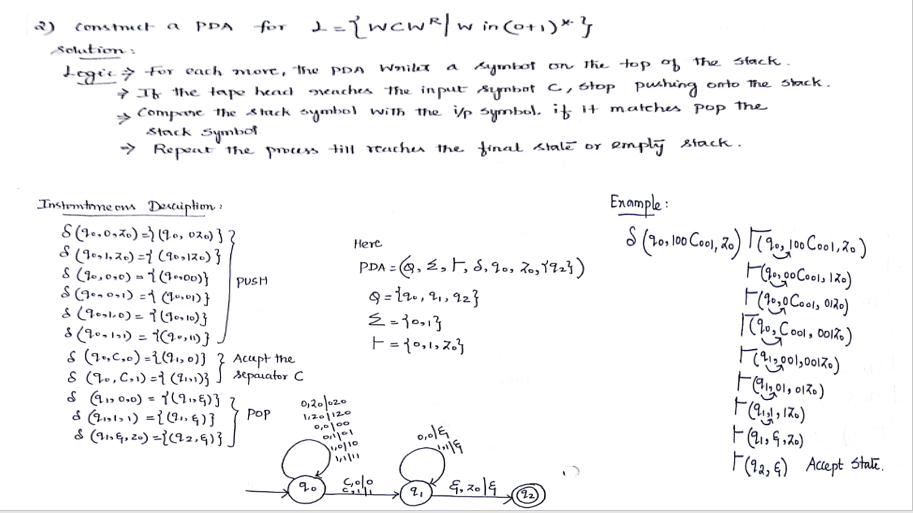 2) construct a PDA for L={WCWᴿ| W in (0+1)*}
Solution:
Logic ⇒ For each move, the PDA Writes a symbol on the top of the stack.
→ If the tape head reaches the input symbol C, stop pushing onto the stack.
⇒ Compare the stack symbol with the i/p symbol. if it matches pop the
stack symbol
→ Repeat the process till reaches the final state or empty stack.
Instantaneous Description:
δ(q₀,0,z₀)={(q₀, 0z₀)}
δ(q₀,1,z₀)={(q₀,1z₀)}
δ(q₀,0,0)={(q₀,00)}
δ(q₀,0,1)={(q₀,01)}
δ(q₀,1,0)={(q₀,10)}
δ(q₀,1,1)={(q₀,11)}
PUSH
δ(q₀,C,0)={(q₁,0)}
δ(q₀,C,1)={(q₁,1)}
Accept the
separator C
δ(q₁,0,0)={(q₁,ε)}
δ(q₁,1,1)={(q₁,ε)}
δ(q₁,ε,z₀)={(q₂,ε)}
POP
Here
PDA=(Q,Σ,Γ,δ,q₀,z₀,{q₂})
Q={q₀,q₁,q₂}
Σ={0,1}
Γ={0,1,z₀}
0,z₀|0z₀
1,z₀|1z₀
0,0|00
0,1|01
1,0|10
1,1|11
q₀
C,0|0
C,1|1
0,0|ε
1,1|ε
q₁
ε,z₀|ε
q₂
Example:
δ(q₀,100C001,z₀) ⊢(q₀,100C001,z₀)
⊢(q₀,00C001,1z₀)
⊢(q₀,0C001,01z₀)
⊢(q₀,C001,001z₀)
⊢(q₁,001,001z₀)
⊢(q₁,01,01z₀)
⊢(q₁,1,1z₀)
⊢(q₁,ε,z₀)
⊢(q₂,ε) Accept State.